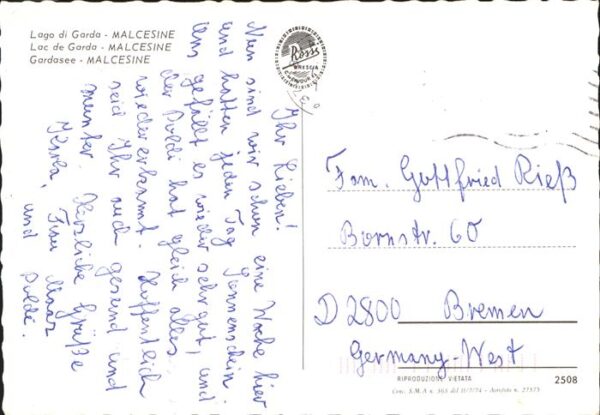 Lago di Garda - MALCESINE
Lac de Garda - MALCESINE
Gardasee - MALCESINE
Rossi
BRESCIA
Ihr Lieben!
Nun sind wir schon eine Woche hier
und hatten jeden Tag Sonnenschein.
Uns gefällt es wieder sehr gut, und
der Poldi hat gleich alles
wiedererkannt. Hoffentlich
seid Ihr auch gesund und
munter. Herzliche Grüße
und Poldi.
Fam. Gottfried Rieß
Bornstr. 60
D 2800 Bremen
Germany-West
RIPRODUZIONE VIETATA
2508
Conc. S.M.A. n. 363 del 11/7/74 - Aerofoto n. 27575